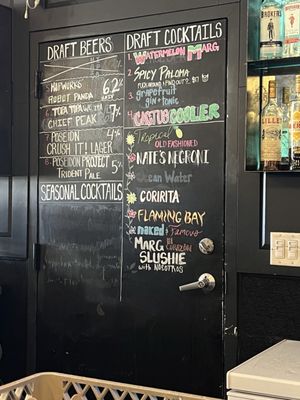 DRAFT BEERS
HOPWORKS
ROBOT PANDA
6.2%
CHIEF PEAK
7%
POSEIDON
CRUSH IT! LAGER
4%
8. POSEIDON PROJECT
TRIDENT PALE
5%
SEASONAL COCKTAILS
DRAFT COCKTAILS
1. WATERMELON MARG
2. SPICY PALOMA
3. grapefruit
gin & TONIC
4. CACTUS COOLER
Tropical
OLD FASHIONED
NATE'S NEGRONI
Ocean Water
CORIRITA
FLAMING BAY
naked & Famous
MARG
SLUSHIE
with NOSOTROS